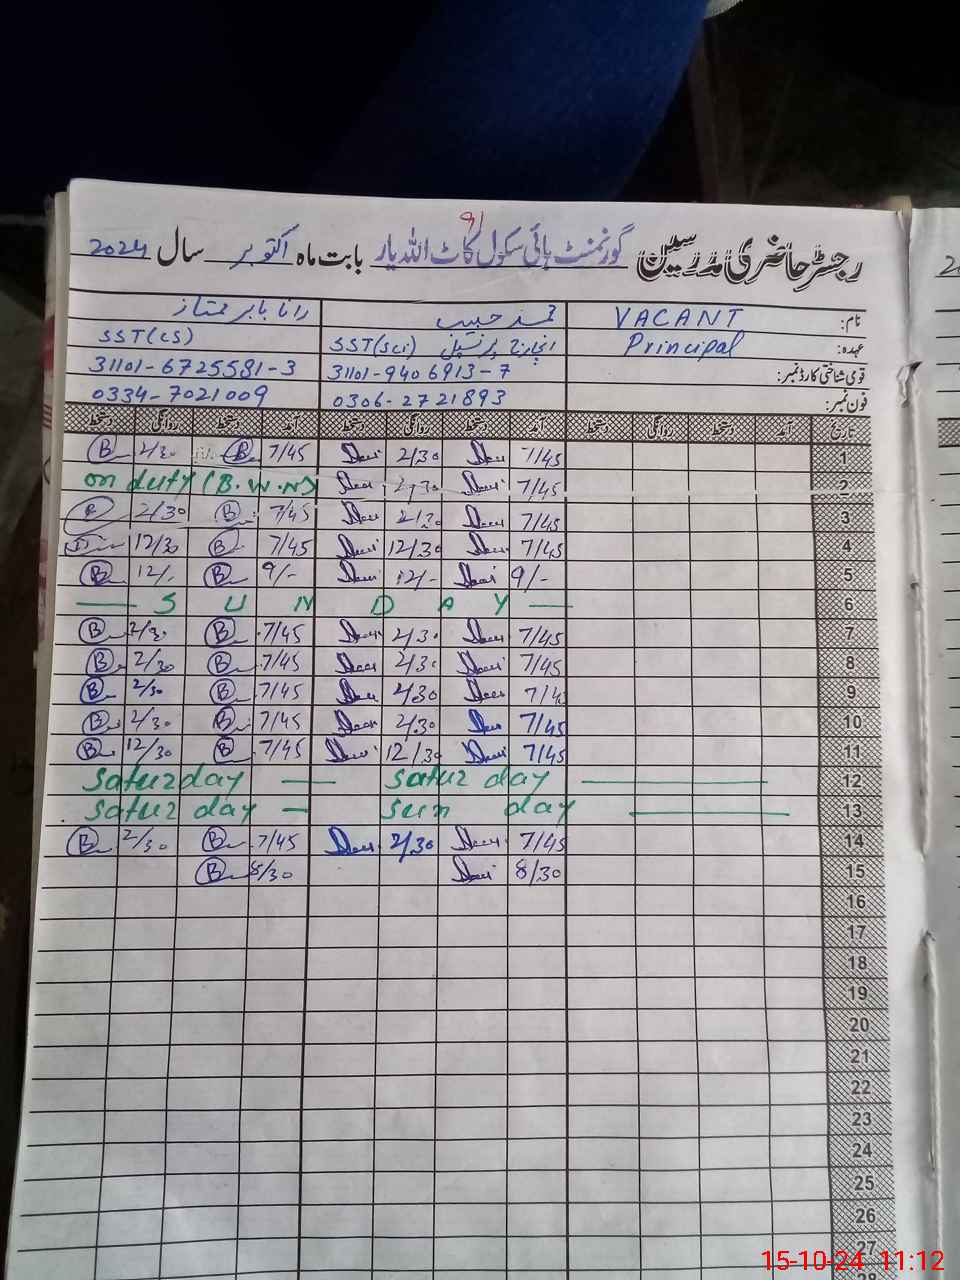 91
رجسٹر حاضری مدرسین گورنمنٹ ہائی سکول کاٹ اللہ یار بابت ماہ اکتوبر سال 2024
نام: VACANT محمد حبیب رانا بابر ممتاز
عہدہ: Principal انچارج پرنسپل SST(Sci) SST(CS)
قومی شناختی کارڈ نمبر: 31101-9406913-7 31101-6725581-3
فون نمبر: 0306-2721893 0334-7021009
تاریخ آمد دستخط روانگی دستخط آمد دستخط روانگی دستخط آمد دستخط روانگی دستخط
1 7/45 2/30 7/45 B 2/30 B
2 7/45 2/30 on duty (B.W.N)
3 7/45 2/30 7/45 B 2/30
4 7/45 12/30 7/45 B 12/30
5 9/- 12/- 9/- B 12/- B
6 SUNDAY
7 7/45 2/30 7/45 B 2/30 B
8 7/45 2/30 7/45 B 2/30 B
9 7/4 2/30 7/45 B 2/30 B
10 7/45 2/30 7/45 B 2/30 B
11 7/45 12/30 7/45 B 12/30 B
12 Saturday Saturday
13 Saturday Sunday
14 7/45 2/30 7/45 B 2/30 B
15 8/30 8/30 B
16
17
18
19
20
21
22
23
24
25
26
27
28
20
15-10-24 11:12